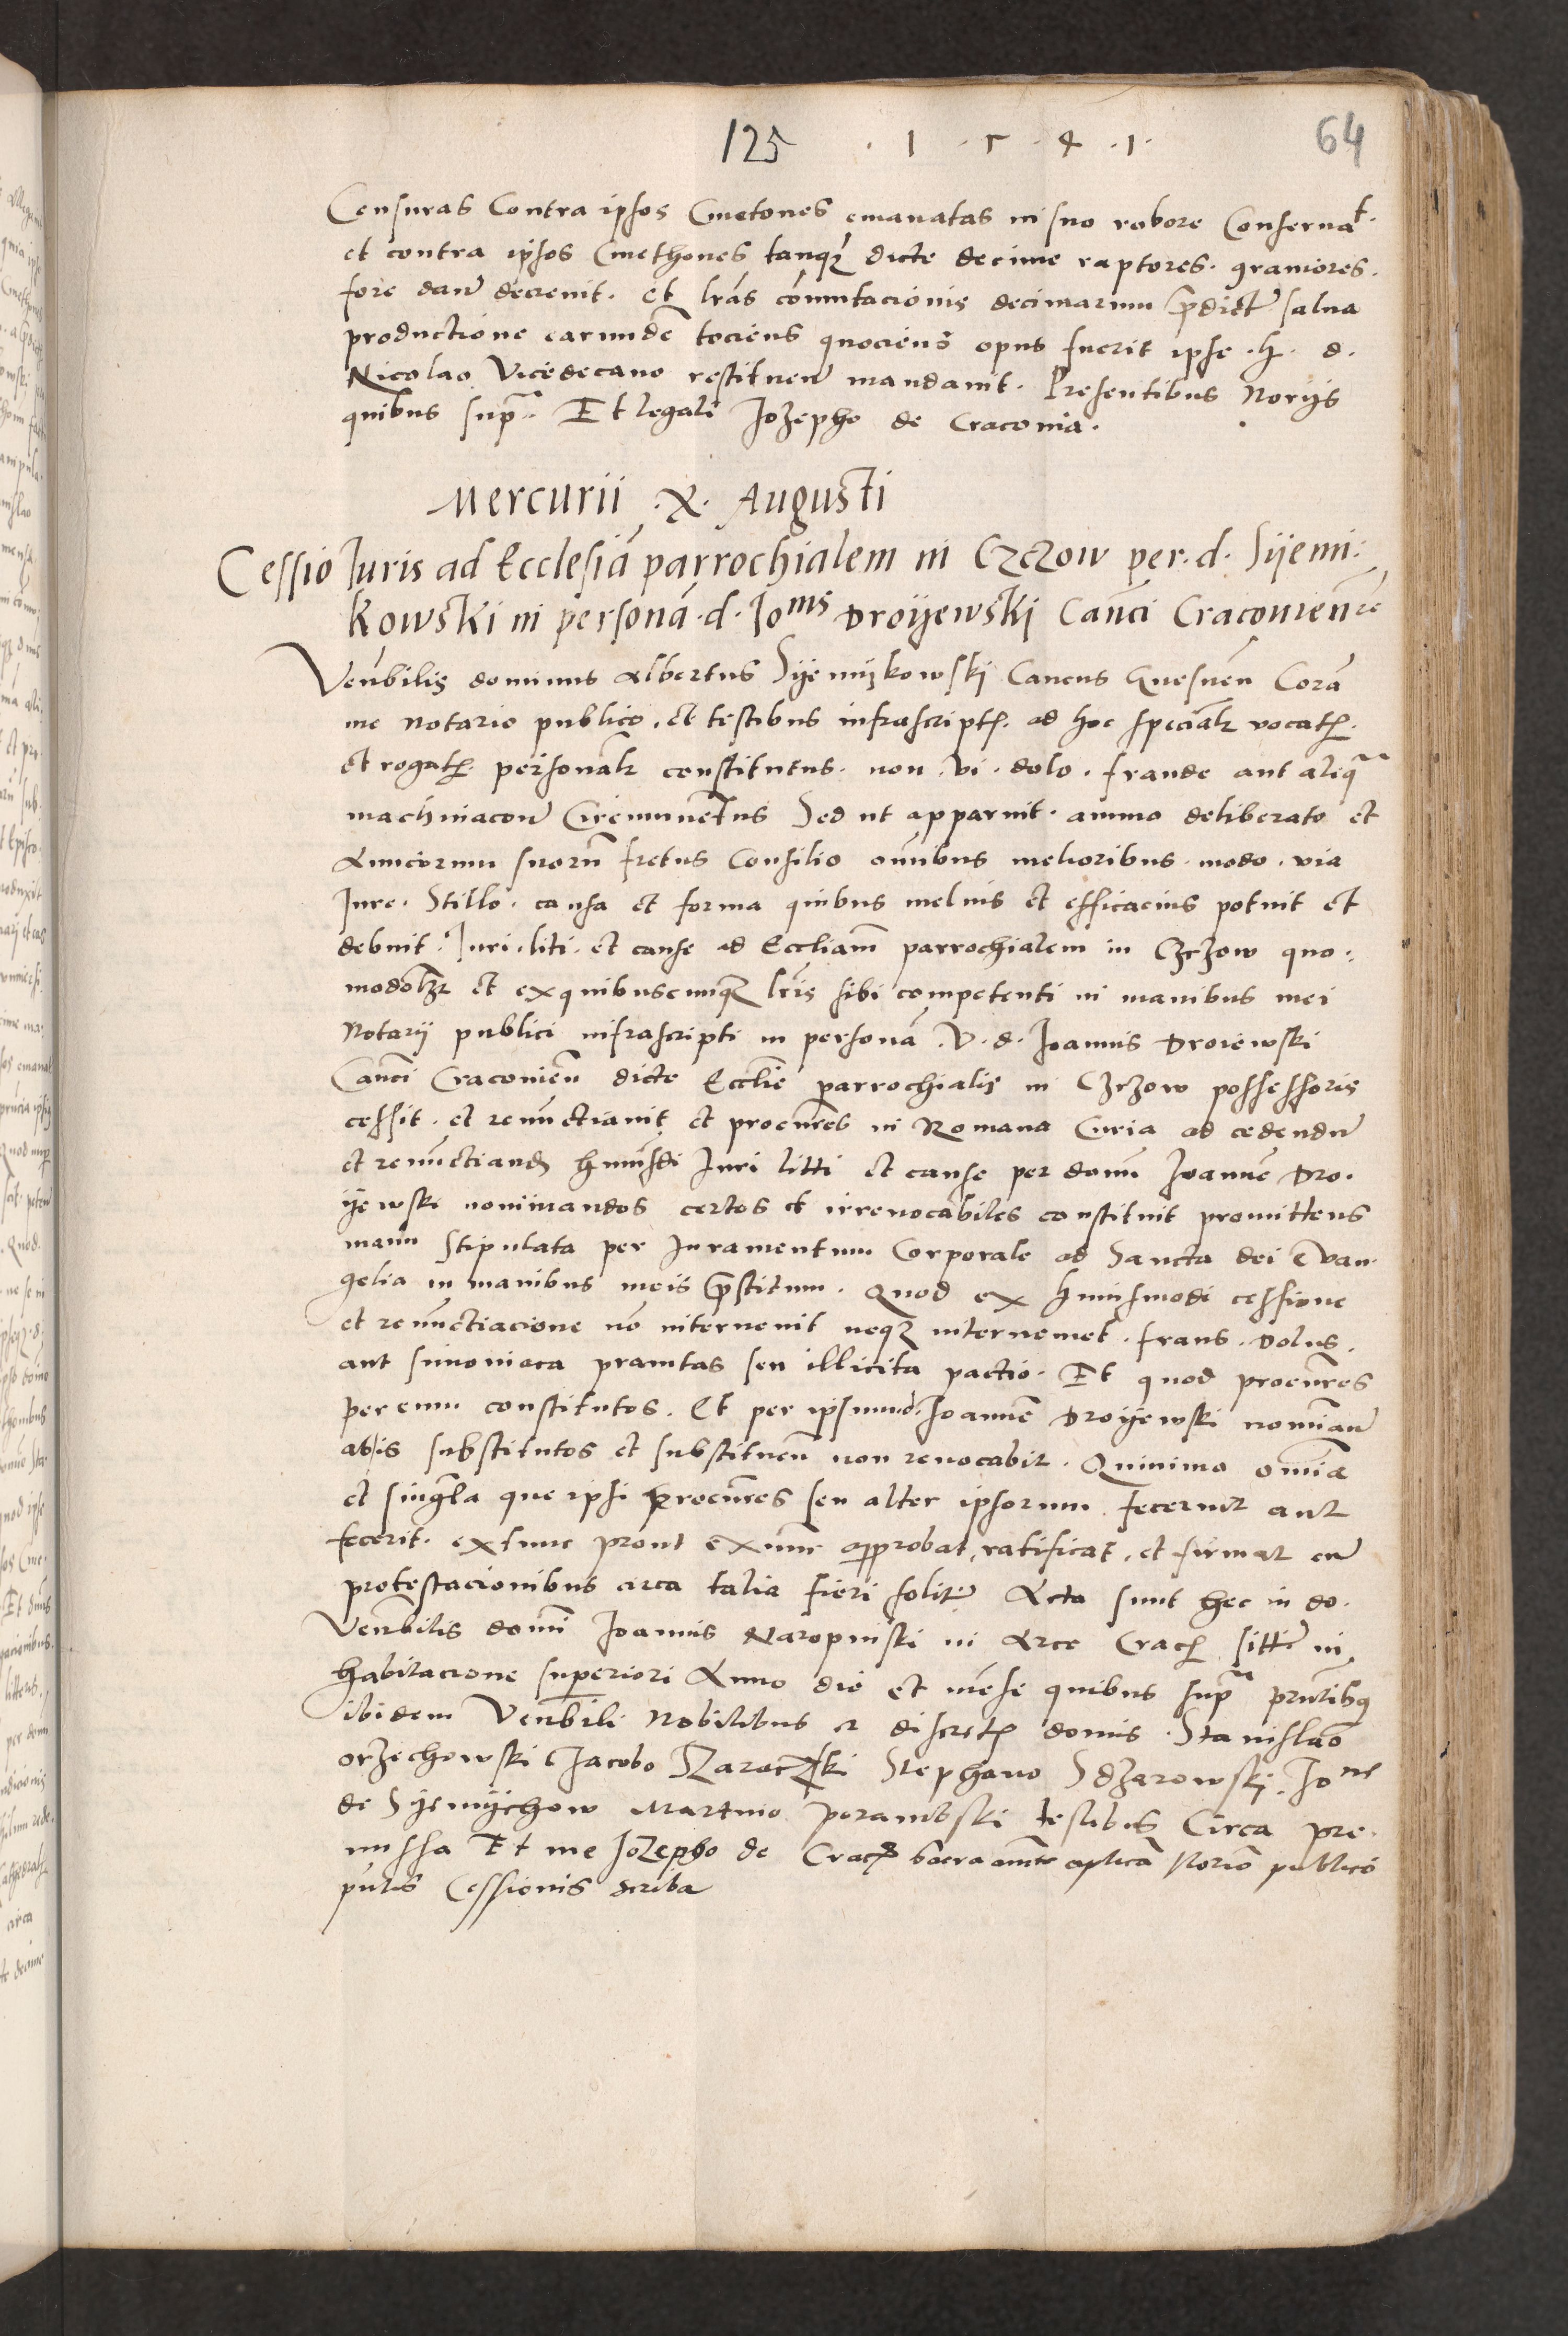 125 · 1 · 5 · 4 · 1 · 64
Censuras Contra ipsos Cmetones emanatas in suo robore Conservat.
et contra ipsos Cmethones tanqz dicte decime raptores. graviores.
fore dan decrevit. et lras comutacionis decimarum pdict salva
productione earundem tociens quociens opus fuerit ipse .h. d.
Nicolao Vicedecano restituen mandavit. Presentibus Noriis
quibus supra Et legali Jozepho de Cracovia.
Mercurii .X. Augusti
Cessio Juris ad Ecclesiā parrochialem in Czczow per .d. Syemi:
Kowski in personā .d. Joms Droyewski Canci Cracovien
Venbilis dominus Albertus Syemykowski Cancus Gnesnen Corā
me Notario publico. et testibus infrascript. ad hoc specialr vocat.
et rogat. personalr constitutus. non. vi. dolo. fraude aut aliqa
machinacoe Circumventus Sed ut apparuit. animo deliberato et
Amicorum suorū fretus Consilio omnibus melioribus. modo. via
Jure. Stillo. causa et forma quibus melius et efficacius potuit et
debuit. Juri. liti. et cause ad Eccliam parrochialem in Czczow quo:
modolzt et exquibuscumqz lris sibi competenti in manibus mei
Notarii publici infrascripti in personā .V. d. Joannis Droiewski
Canci Cracovien dicte Ecclie parrochialis in Czczow possessoris
cessit. et renunctiavit et procures in Romana Curia ad cedendū
et renunctiand huiusdi Juri litti et cause per donū Joannē Dro.
yewski nominandos certos et irrevocabiles constituit promittens
manu stipulata per Juramentum Corporale ad Sancta dei Evan
gelia in manibus meis prestitum. Quod ex huiusmodi cessione
et renunctiacione nō intervenit neqz interveniet. fraus. dolus.
aut simoniaca pravitas seu illicita pactio. Et quod procures
per eum constitutos. Et per ipsum d. Joannē Droyewski nomian
ab is substitutos et substituen non revocabit. Quinimo omia
et singla que ipsi procures seu alter ipsorum fecerint aut
fecerit. extunc prout exnunc approbat, ratificat, et firmat cū
protestacionibus circa talia fieri solit Acta sunt hec in do.
Venbilis domi Joannis Naropinski in Arce Crac sitte in
habitacione superiori Anno die et mēse quibus supra pntibq
ibidem Venbili Nobilibus et discret domis. Stanislao
orzechowski Jacobo Stephano Jone
de Syemychow Martino porambski testibus Circa pre.
missa Et me Jozepho de Crac aplica Norio publico
pntis Cessionis scriba